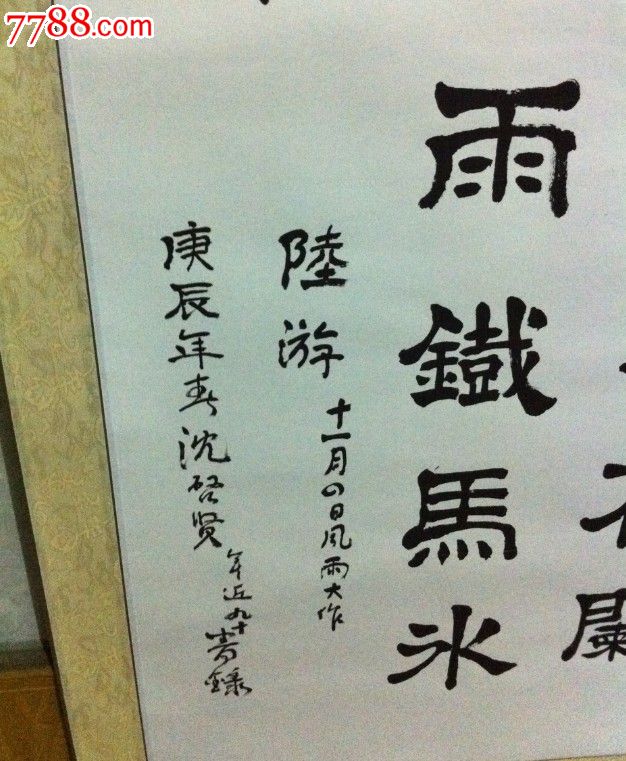 7788.com
闌
雨鐵馬氷
陸游
十一月四日風雨大作
庚辰年春沈啓贤
年近九十